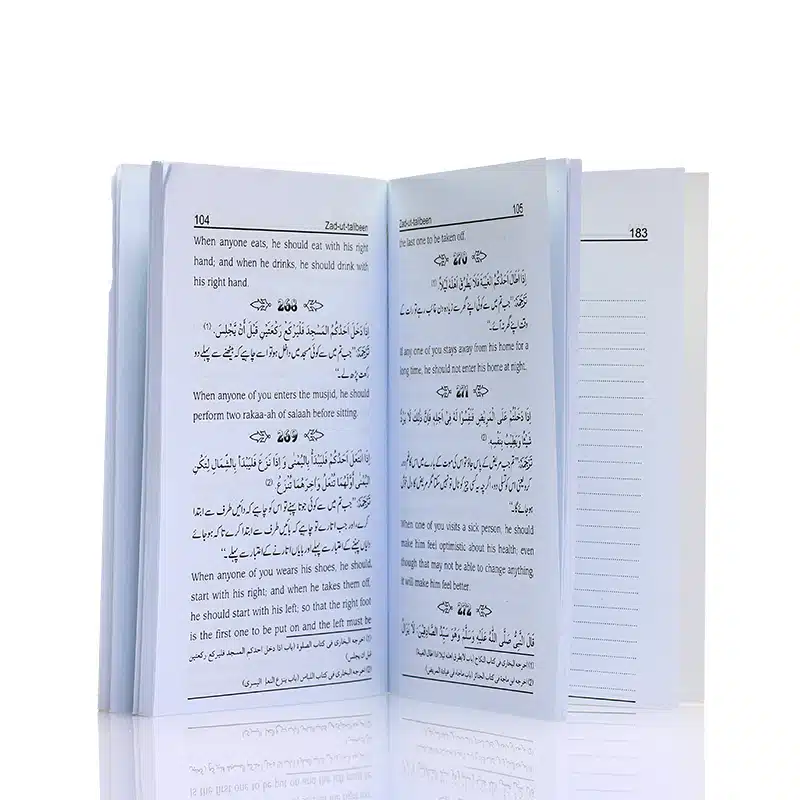 104
Zad-ut-talibeen
When anyone eats, he should eat with his right
hand; and when he drinks, he should drink with
his right hand.
268
اِذَا دَخَلَ اَحَدُكُمُ الْمَسْجِدَ فَلْيَرْكَعْ رَكْعَتَيْنِ قَبْلَ اَنْ يَّجْلِسَ. (1)
ترجمہ: ”جب تم میں سے کوئی مسجد میں داخل ہو تو اسے چاہیے کہ بیٹھنے سے پہلے دو
رکعت پڑھ لے۔“
When anyone of you enters the musjid, he should
perform two rakaa-ah of salaah before sitting.
269
اِذَا انْتَعَلَ اَحَدُكُمْ فَلْيَبْدَأْ بِالْيُمْنٰى وَ اِذَا نَزَعَ فَلْيَبْدَأْ بِالشِّمَالِ لِتَكُنِ
الْيُمْنٰى اَوَّلُهُمَا تُنْعَلُ وَاٰخِرَهُمَا تُنْزَعُ (2)
ترجمہ: ”جب تم میں سے کوئی جوتا پہنے تو اس کو چاہیے کہ دائیں طرف سے ابتدا
کرے، اور جب اتارے تو چاہیے کہ بائیں طرف سے ابتدا کرے تا کہ ہو جائے
دایاں پہننے کے اعتبار سے پہلے اور بایاں اتارنے کے اعتبار سے پہلے۔“
When anyone of you wears his shoes, he should
start with his right; and when he takes them off,
he should start with his left; so that the right foot
is the first one to be put on and the left must be
(1) اخرجه البخاری فی کتاب الصلوة (باب اذا دخل احدکم المسجد فلیرکع رکعتین
قبل ان یجلس)
(2) اخرجه البخاری فی کتاب اللباس (باب ینزع النعل الیسری)
Zad-ut-talibeen
105
the last one to be taken off.
270
اِذَا اَطَالَ اَحَدُكُمُ الْغَيْبَةَ فَلَا يَطْرُقْ اَهْلَهٗ لَيْلًا. (1)
ترجمہ: ”جب تم میں سے کوئی اپنے گھر سے زیادہ دن غائب رہے تو رات کے
وقت اپنے گھر نہ آئے۔“
If any one of you stays away from his home for a
long time, he should not enter his home at night.
271
اِذَا دَخَلْتُمْ عَلَى الْمَرِيْضِ فَنَفِّسُوْا لَهٗ فِيْ اَجَلِهٖ فَاِنَّ ذٰلِكَ لَا يَرُدُّ
شَيْئًا وَيُطَيِّبُ بِنَفْسِهٖ (2)
When one of you visits a sick person, he should
make him feel optimistic about his health; even
though that may not be able to change anything,
it will make him feel better.
272
قَالَ النَّبِيُّ صَلَّى اللّٰهُ عَلَيْهِ وَسَلَّمَ وَهُوَ سَيِّدُ الصَّادِقِيْنَ: لَا يَزَالُ
(1) اخرجه البخاری فی کتاب النکاح (باب لا یطرق اهله لیلا اذا اطال الغیبة)
(2) اخرجه ابن ماجة فی کتاب الجنائز (باب ماجاء فی عیادة المریض)
183